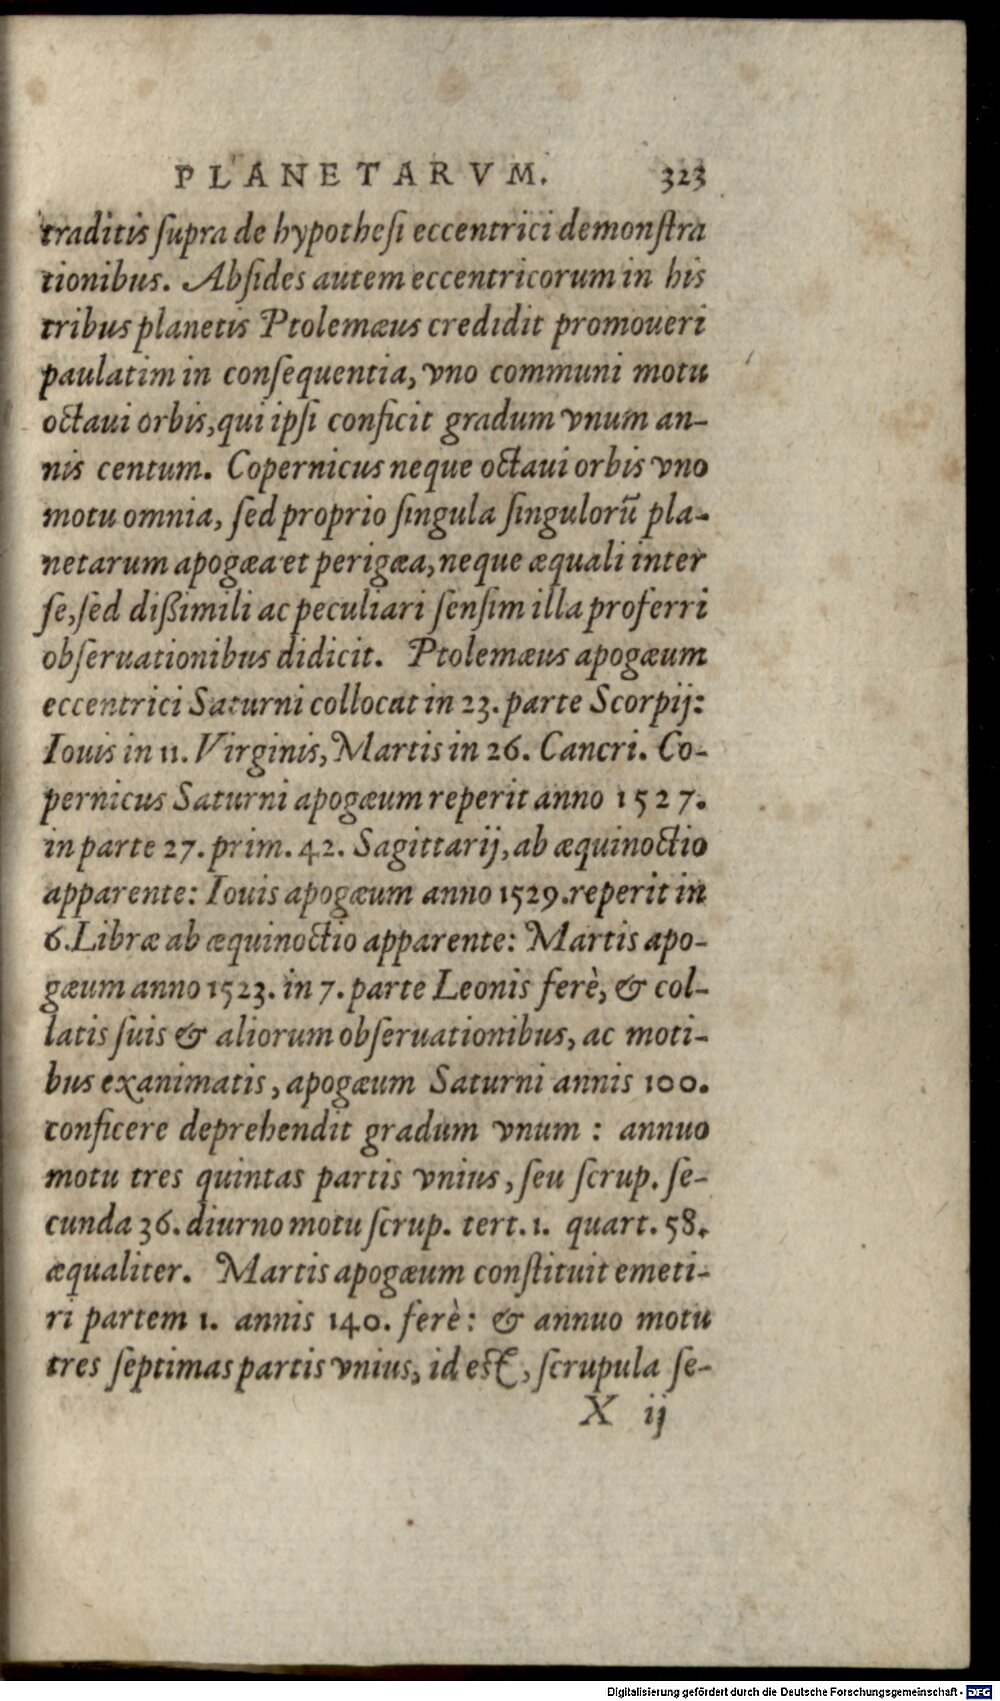 PLANETARVM. 323
traditis ſupra de hypotheſi eccentrici demonſtra
tionibus. Abſides autem eccentricorum in his
tribus planetis Ptolemæus credidit promoueri
paulatim in conſequentia, vno communi motu
octaui orbis, qui ipſi conficit gradum vnum an-
nis centum. Copernicus neque octaui orbis vno
motu omnia, ſed proprio ſingula ſingulorū pla-
netarum apogæa et perigæa, neque æquali inter
ſe, ſed dißimili ac peculiari ſenſim illa proferri
obſeruationibus didicit. Ptolemæus apogæum
eccentrici Saturni collocat in 23. parte Scorpij:
Iouis in 11. Virginis, Martis in 26. Cancri. Co-
pernicus Saturni apogæum reperit anno 1527.
in parte 27. prim. 42. Sagittarij, ab æquinoctio
apparente: Iouis apogæum anno 1529. reperit in
6. Libræ ab æquinoctio apparente: Martis apo-
gæum anno 1523. in 7. parte Leonis ferè, & col-
latis ſuis & aliorum obſeruationibus, ac moti-
bus exanimatis, apogæum Saturni annis 100.
conficere deprehendit gradum vnum : annuo
motu tres quintas partis vnius, ſeu ſcrup. ſe-
cunda 36. diurno motu ſcrup. tert. 1. quart. 58.
æqualiter. Martis apogæum conſtituit emeti-
ri partem 1. annis 140. ferè: & annuo motu
tres ſeptimas partis vnius, id eſt, ſcrupula ſe-
X ij
Digitalisierung gefördert durch die Deutsche Forschungsgemeinschaft - DFG